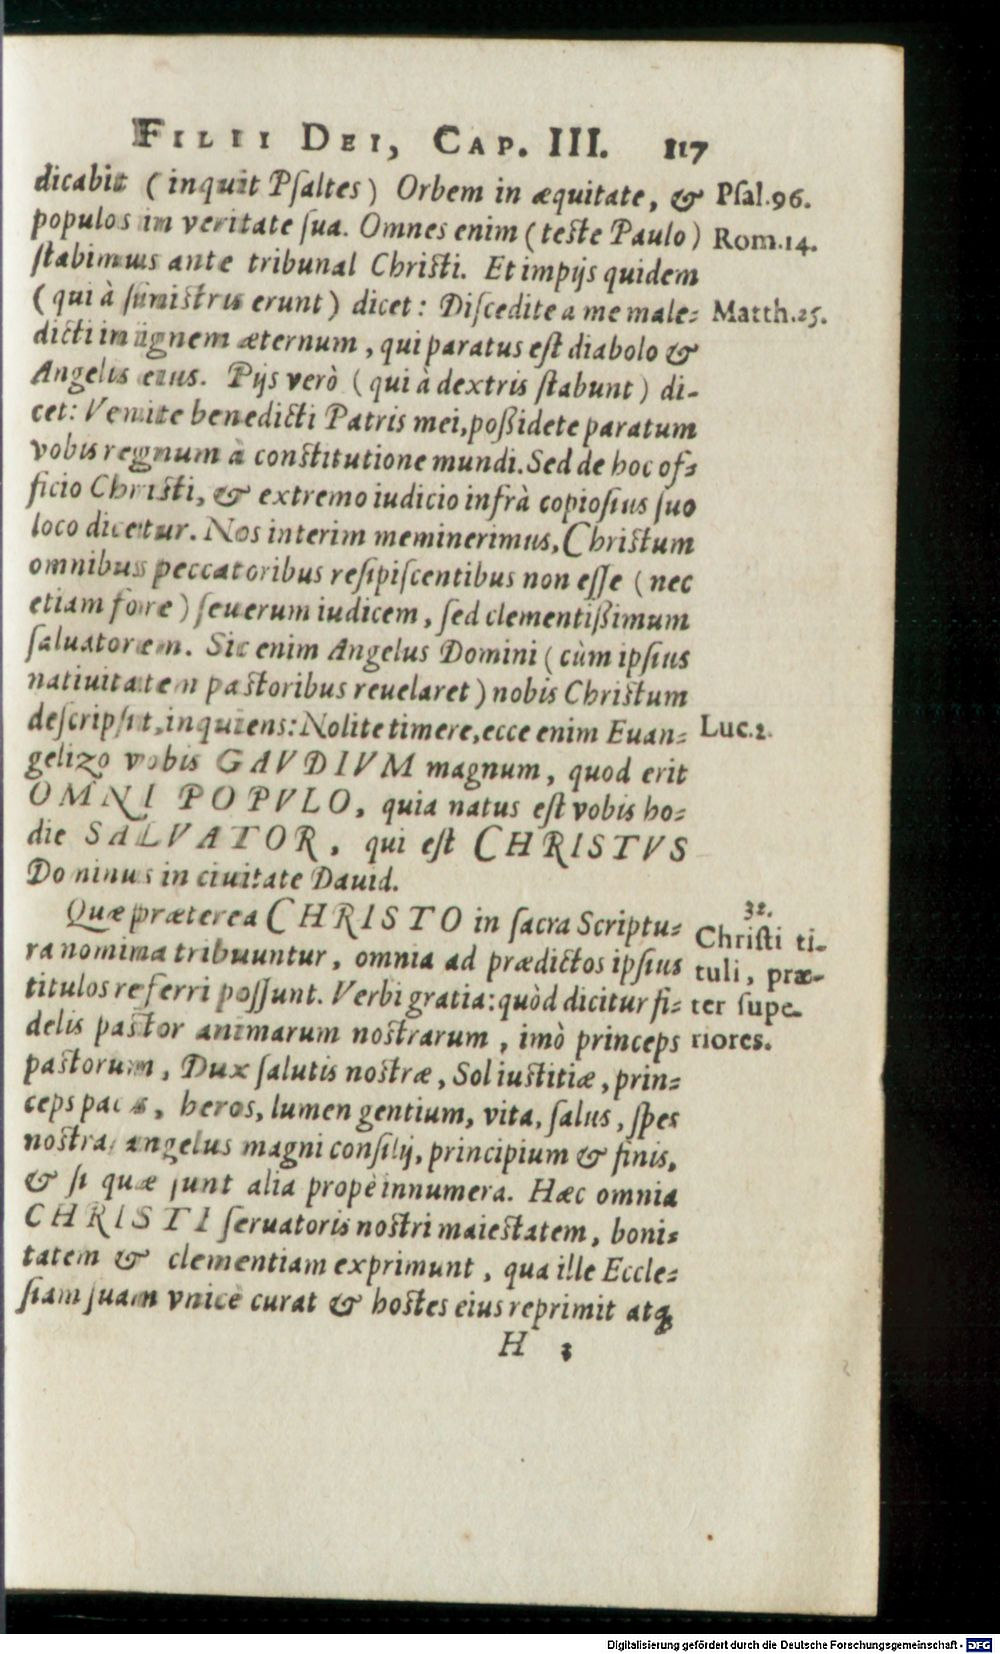 FILII DEI, CAP. III. 117
dicabit (inquit Psaltes) Orbem in æquitate, & Psal.96.
populos in veritate sua. Omnes enim (teste Paulo) Rom.14.
stabimus ante tribunal Christi. Et impijs quidem
(qui à sinistris erunt) dicet: Discedite a me male= Matth.25.
dicti in ignem æternum, qui paratus est diabolo &
Angelis eius. Pijs verò (qui à dextris stabunt) di-
cet: Venite benedicti Patris mei, poßidete paratum
vobis regnum à constitutione mundi. Sed de hoc of=
ficio Christi, & extremo iudicio infrà copiosius suo
loco dicetur. Nos interim meminerimus, Christum
omnibus peccatoribus resipiscentibus non esse (nec
etiam fore) seuerum iudicem, sed clementißimum
saluatorem. Sic enim Angelus Domini (cùm ipsius
natiuitatem pastoribus reuelaret) nobis Christum
descripsit, inquiens: Nolite timere, ecce enim Euan= Luc.2.
gelizo vobis GAVDIVM magnum, quod erit
OMNI POPVLO, quia natus est vobis ho=
die SALVATOR, qui est CHRISTVS
Dominus in ciuitate Dauid.
Quæ præterea CHRISTO in sacra Scriptu= 32.
ra nomina tribuuntur, omnia ad prædictos ipsius Christi ti-
titulos referri possunt. Verbi gratia: quòd dicitur fi= tuli, præ-
delis pastor animarum nostrarum, imò princeps ter supe-
pastorum, Dux salutis nostræ, Sol iustitiæ, prin= riores.
ceps pacis, heros, lumen gentium, vita, salus, spes
nostra, angelus magni consilij, principium & finis,
& si quæ sunt alia propè innumera. Hæc omnia
CHRISTI seruatoris nostri maiestatem, boni=
tatem & clementiam exprimunt, qua ille Eccle=
siam suam vnicè curat & hostes eius reprimit atq́;
H 3
Digitalisierung gefördert durch die Deutsche Forschungsgemeinschaft - DFG